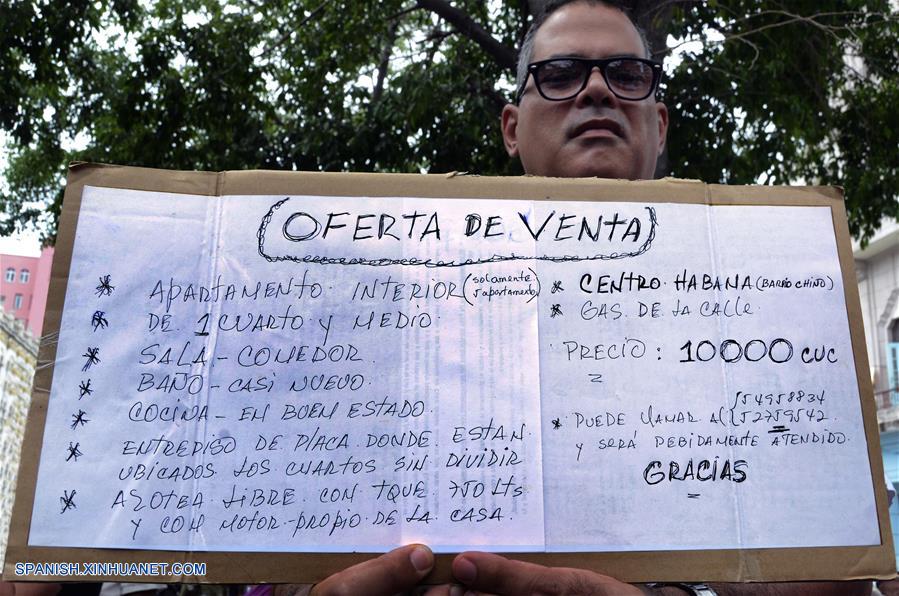 OFERTA DE VENTA
* APARTAMENTO INTERIOR (solamente
5 apartamento)
* DE 1 CUARTO Y MEDIO.
* SALA - COMEDOR.
* BAÑO - CASI NUEVO.
* COCINA - EN BUEN ESTADO.
* ENTREPISO DE PLACA DONDE ESTAN
UBICADOS LOS CUARTOS SIN DIVIDIR
* AZOTEA LIBRE CON TQUE 750 Lts
Y CON MOTOR PROPIO DE LA CASA.
* CENTRO HABANA (BARRIO CHINO)
* GAS DE LA CALLE
PRECIO: 10000 CUC
54958834
* PUEDE LLAMAR AL 52759542
Y SERÁ DEBIDAMENTE ATENDIDO.
GRACIAS
SPANISH.XINHUANET.COM